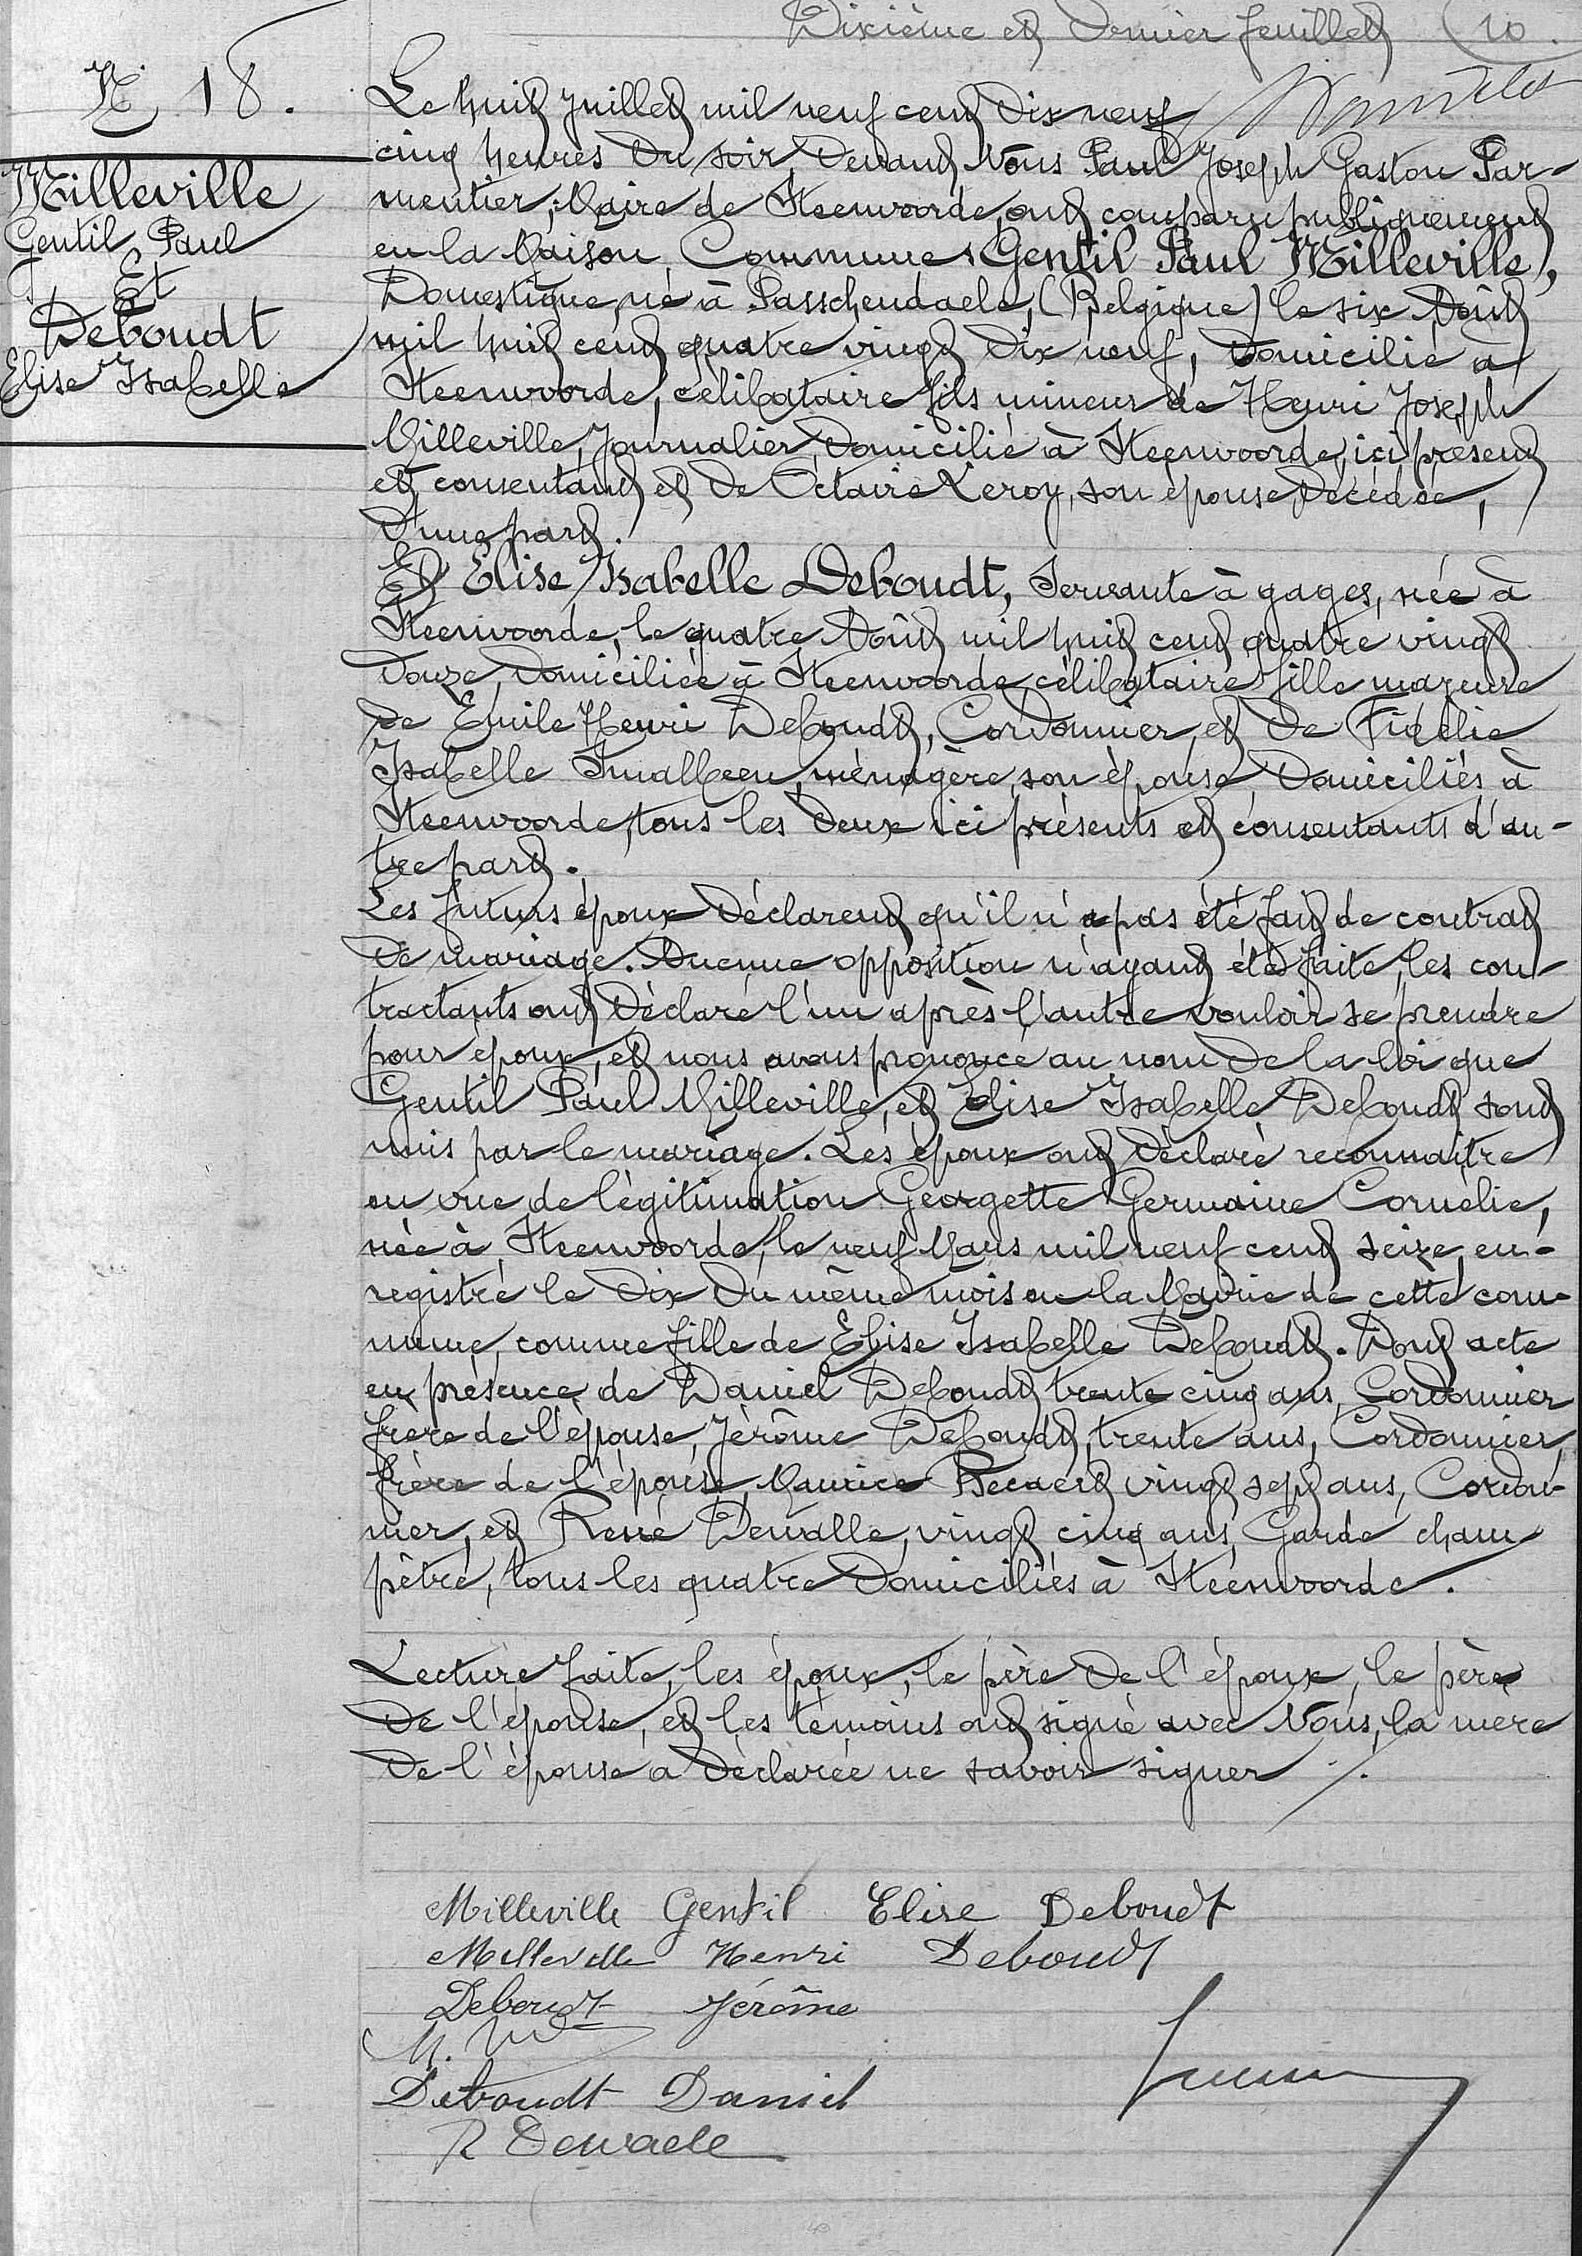 Dixième et Dernier feuillet 10.
N° 18.
Milleville
Gentil Paul
Et
Deboudt
Elise Isabelle
Le huit Juillet mil neuf cent Dix neuf
cinq heures Du soir Devant Nous Paul Joseph Gaston Par-
mentier, Maire de Steenvoorde, ont comparu publiquement
en la Maison Commune Gentil Paul Milleville,
Domestique, né à Passchendaele, (Belgique) le six Août
mil huit cent quatre vingt Dix neuf, Domicilié à
Steenvoorde, célibataire fils mineur de Henri Joseph
Milleville, Journalier, Domicilié à Steenvoorde, ici présent
et consentant et De Octavie Leroy, son épouse Décédée,
D'une part.
Et Elise Isabelle Deboudt, Servante à gages, née à
Steenvoorde, le quatre Août mil huit cent quatre vingt
Douze, Domiciliée à Steenvoorde, célibataire fille majeure
de Emile Henri Deboudt, Cordonnier, et De Fidélie
Isabelle Smalbeen, ménagère, son épouse, Domiciliés à
Steenvoorde, tous les Deux ici présents et consentants d'au-
tre part.
Les futurs époux Déclarent qu'il n'a pas été fait de contrat
De mariage. Aucune opposition n'ayant été faite, les con-
tractants ont Déclaré l'un après l'autre vouloir se prendre
pour époux, et nous avons prononcé au nom De la loi que
Gentil Paul Milleville, et Elise Isabelle Deboudt sont
unis par le mariage. Les époux ont Déclaré reconnaitre
en vue de légitimation Georgette Germaine Cornélie,
née à Steenvoorde, le neuf Mars mil neuf cent seize, en-
registré le Dix Du même mois en la Mairie de cette com-
mune, comme fille de Elise Isabelle Deboudt. Dont acte
en présence de Daniel Deboudt trente cinq ans, Cordonnier
frère de l'épouse, Jérôme Deboudt, trente ans, Cordonnier,
frère de l'épouse, Maurice vingt sept ans, Cordon-
nier, et René Dewalle, vingt cinq ans, Garde cham
pêtre, tous les quatre Domiciliés à Steenvoorde.
Lecture faite, les époux, le père De l'époux, le père
De l'épouse, et les témoins ont signé avec Nous, la mère
De l'épouse a Déclarée ne savoir signer ./.
Milleville Gentil Elise Deboudt
Milleville Henri Deboudt
Deboudt Jérôme
M.
Deboudt Daniel
R Dewaele